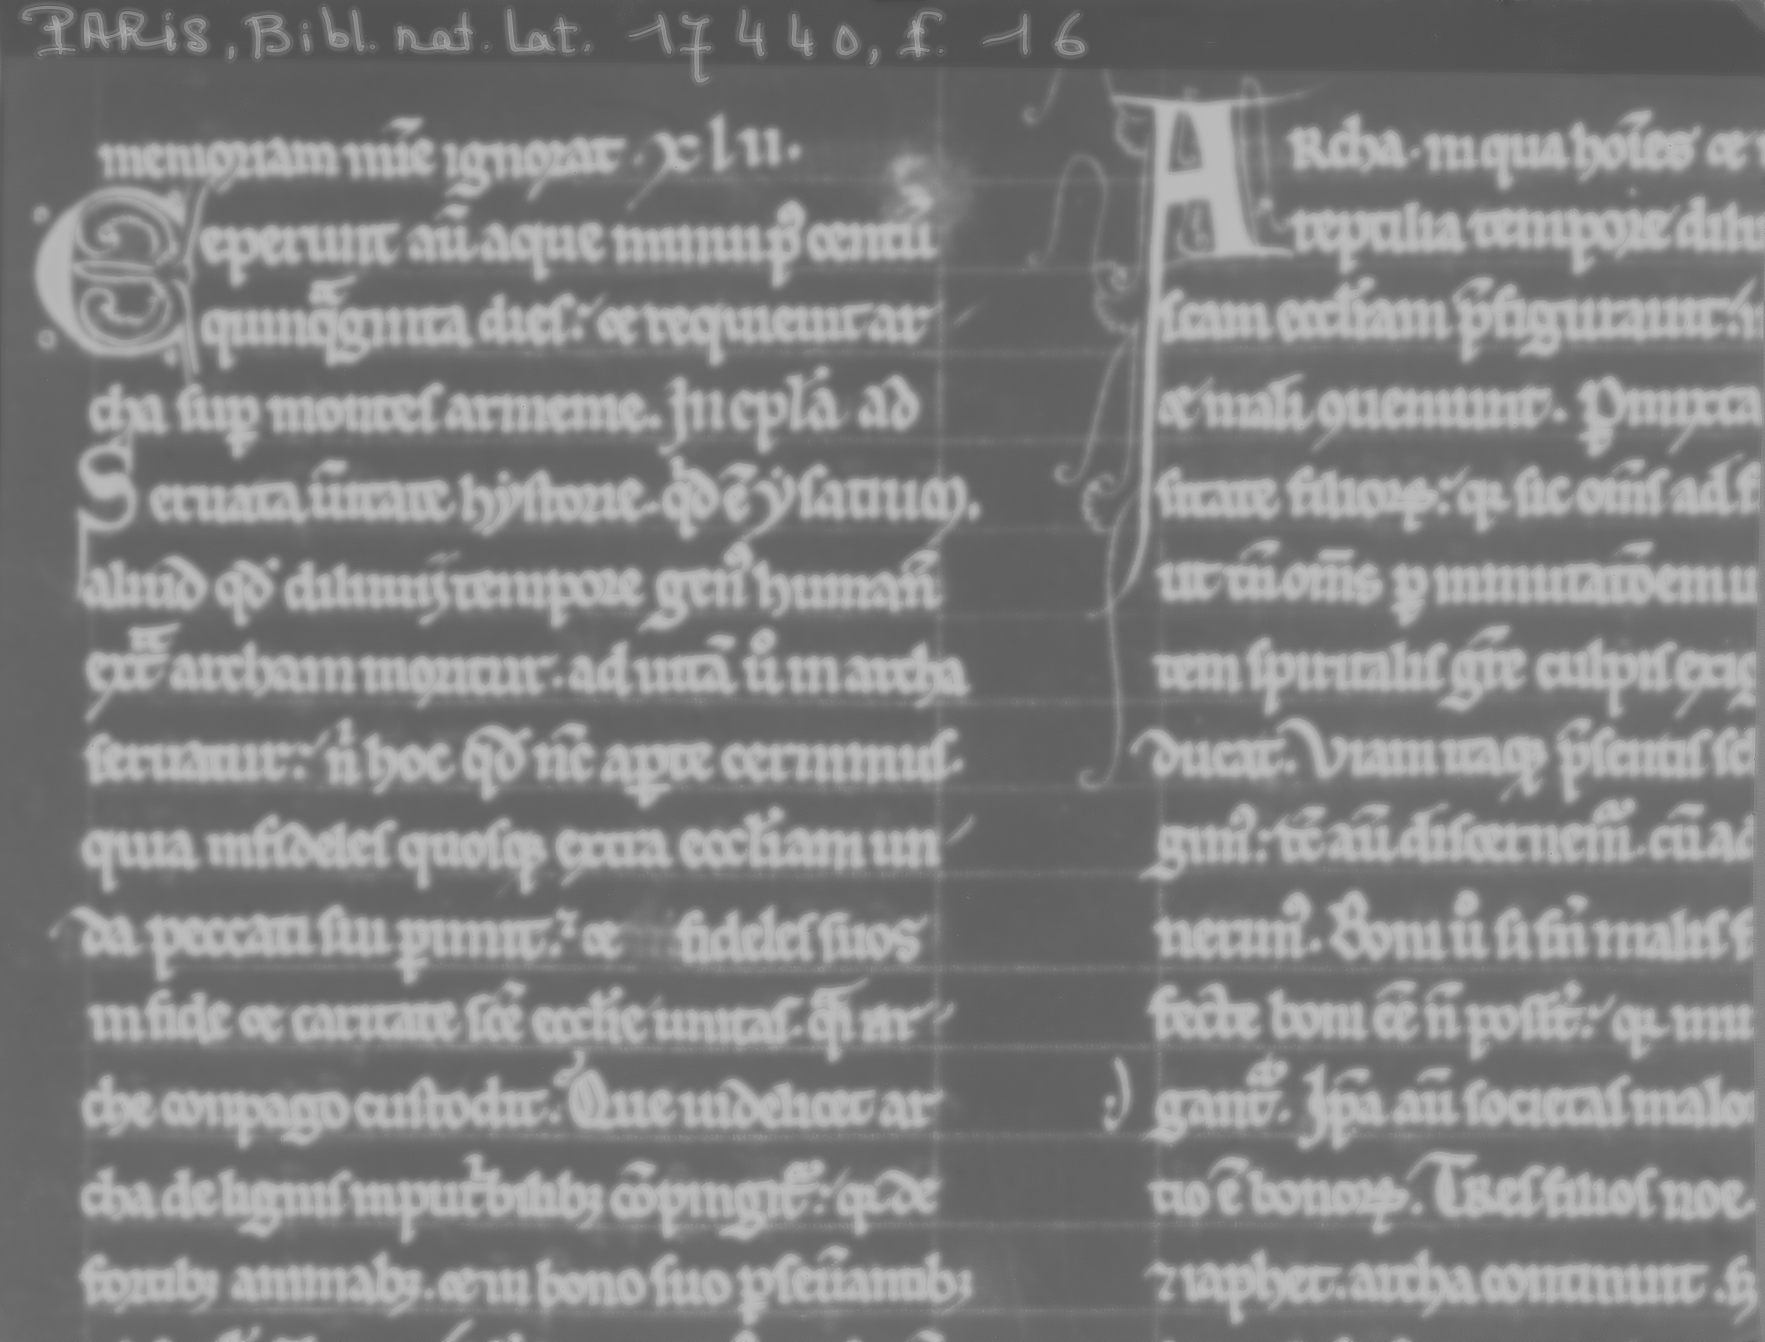 PARIS, Bibl. nat. lat. 17440, f. 16
memoriam mīe ignorat. xlii.
Ceperunt aū aque minui ꝑ᾽ centū
quinqᵃginta dies: et requieuit ar
cha suꝑ montes armenie. In epl̄a ad
Seruata ūitate hystorie. qd̄ ē
aliud qd̄ diluuij tempore gen᾽ humanū
extᵃ archam moritur. ad uitā ů in archa
seruatur: nⁱ hoc qd̄ nc̄ aꝑte cernimus.
quia infideles quosqꝫ extra eccl̄iam un
da peccati sui ꝑimit: et fideles suos
in fide et caritate sc̄e eccl̄ie unitas. qͣi ar
che conpago custodit. Que uidelicet ar
cha de lignis inputⁱbilibꝫ cōpingit᷑: qꝛ de
fortibꝫ animabꝫ. et in bono suo ꝑseūantibꝫ
Archa. in qua hoīes et
reptilia tempore dilu
scam eccl̄iam p̄figurauit:
et mali ꝯueniunt. Pro iuxta
sitate filioꝝ: qꝛ sic om̄s ad f
ut tn̄ om̄s ꝑ inmutatōem u
tem spiritalis gr̄e culpis exig
ducat. Viam itaqꝫ p̄sentis sc̄
gim᾽: tc̄ aū discernem᾽. cū ad
nerim᾽. Boni ů si sn̄ malis s
fecte boni ēē n̄ possēt: qꝛ mu
gant᷑. Ip̄a aū societas malo
tio ē bonoꝝ. Tres filios noe.
⁊ iaphet. archa continuit. sꝫ